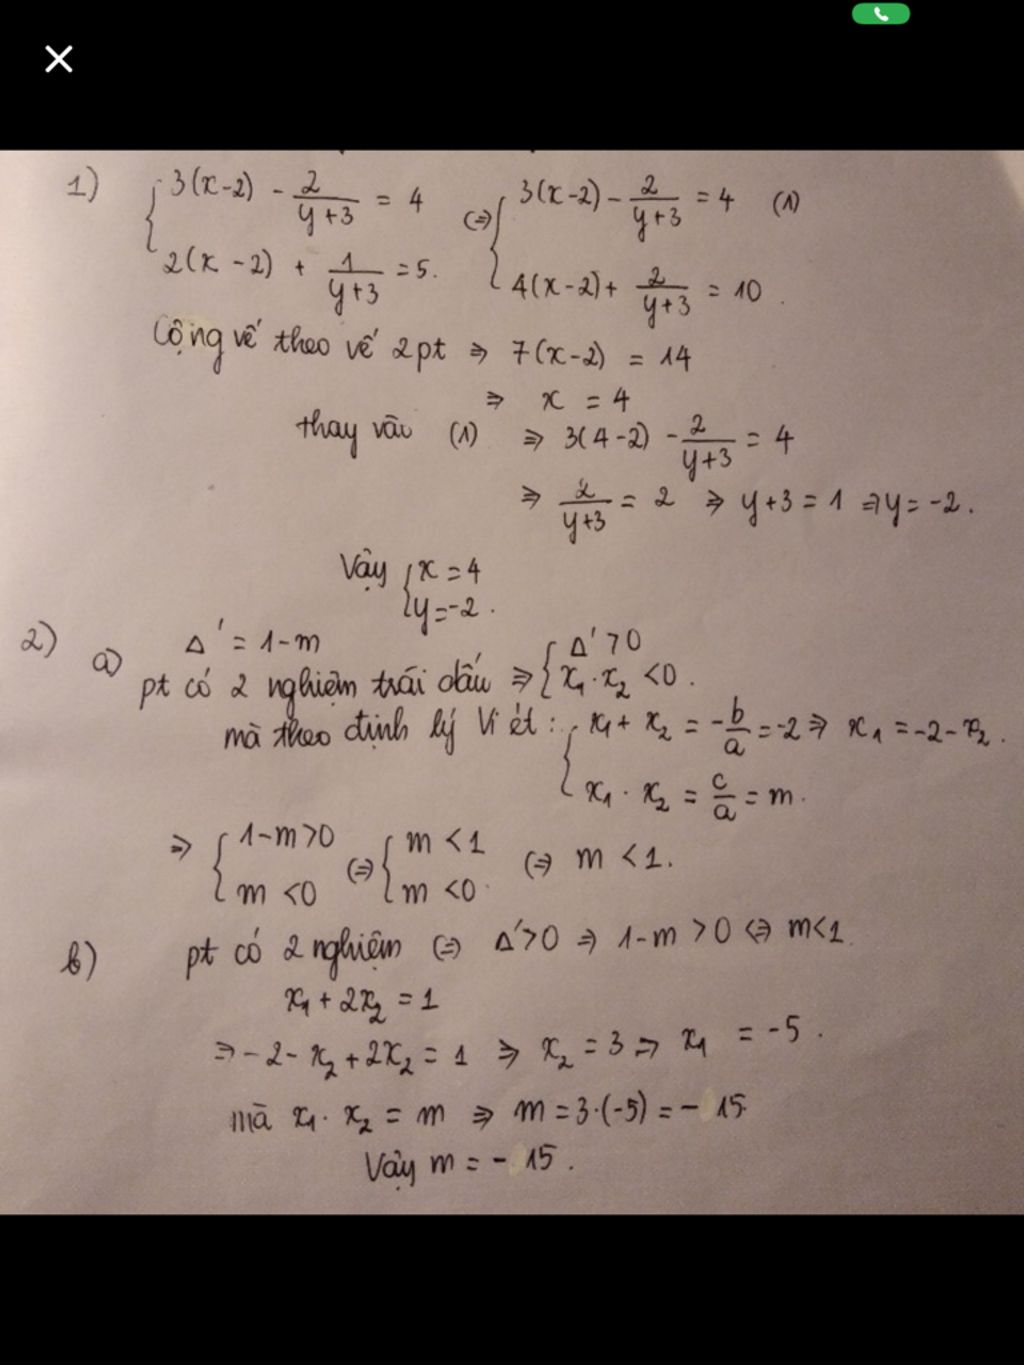 1) { 3(x-2) - 2/(y+3) = 4 (=) { 3(x-2) - 2/(y+3) = 4 (1)
2(x-2) + 1/(y+3) = 5. 4(x-2) + 2/(y+3) = 10.
Cộng vế theo vế 2pt ⇒ 7(x-2) = 14
⇒ x = 4
thay vào (1) ⇒ 3(4-2) - 2/(y+3) = 4
⇒ 2/(y+3) = 2 ⇒ y+3 = 1 ⇒ y = -2.
Vậy { x = 4
y = -2.
2) a) Δ' = 1-m
pt có 2 nghiệm trái dấu ⇒ { Δ' > 0
x₁.x₂ < 0.
mà theo định lý Vi ét: { x₁ + x₂ = -b/a = -2 ⇒ x₁ = -2 - x₂.
x₁ . x₂ = c/a = m.
⇒ { 1-m > 0 (=) { m < 1 (=) m < 1.
m < 0 m < 0.
b) pt có 2 nghiệm (=) Δ' > 0 ⇒ 1-m > 0 ⇔ m < 1.
x₁ + 2x₂ = 1
⇒ -2 - x₂ + 2x₂ = 1 ⇒ x₂ = 3 ⇒ x₁ = -5.
mà x₁ . x₂ = m ⇒ m = 3.(-5) = -15
Vậy m = -15.